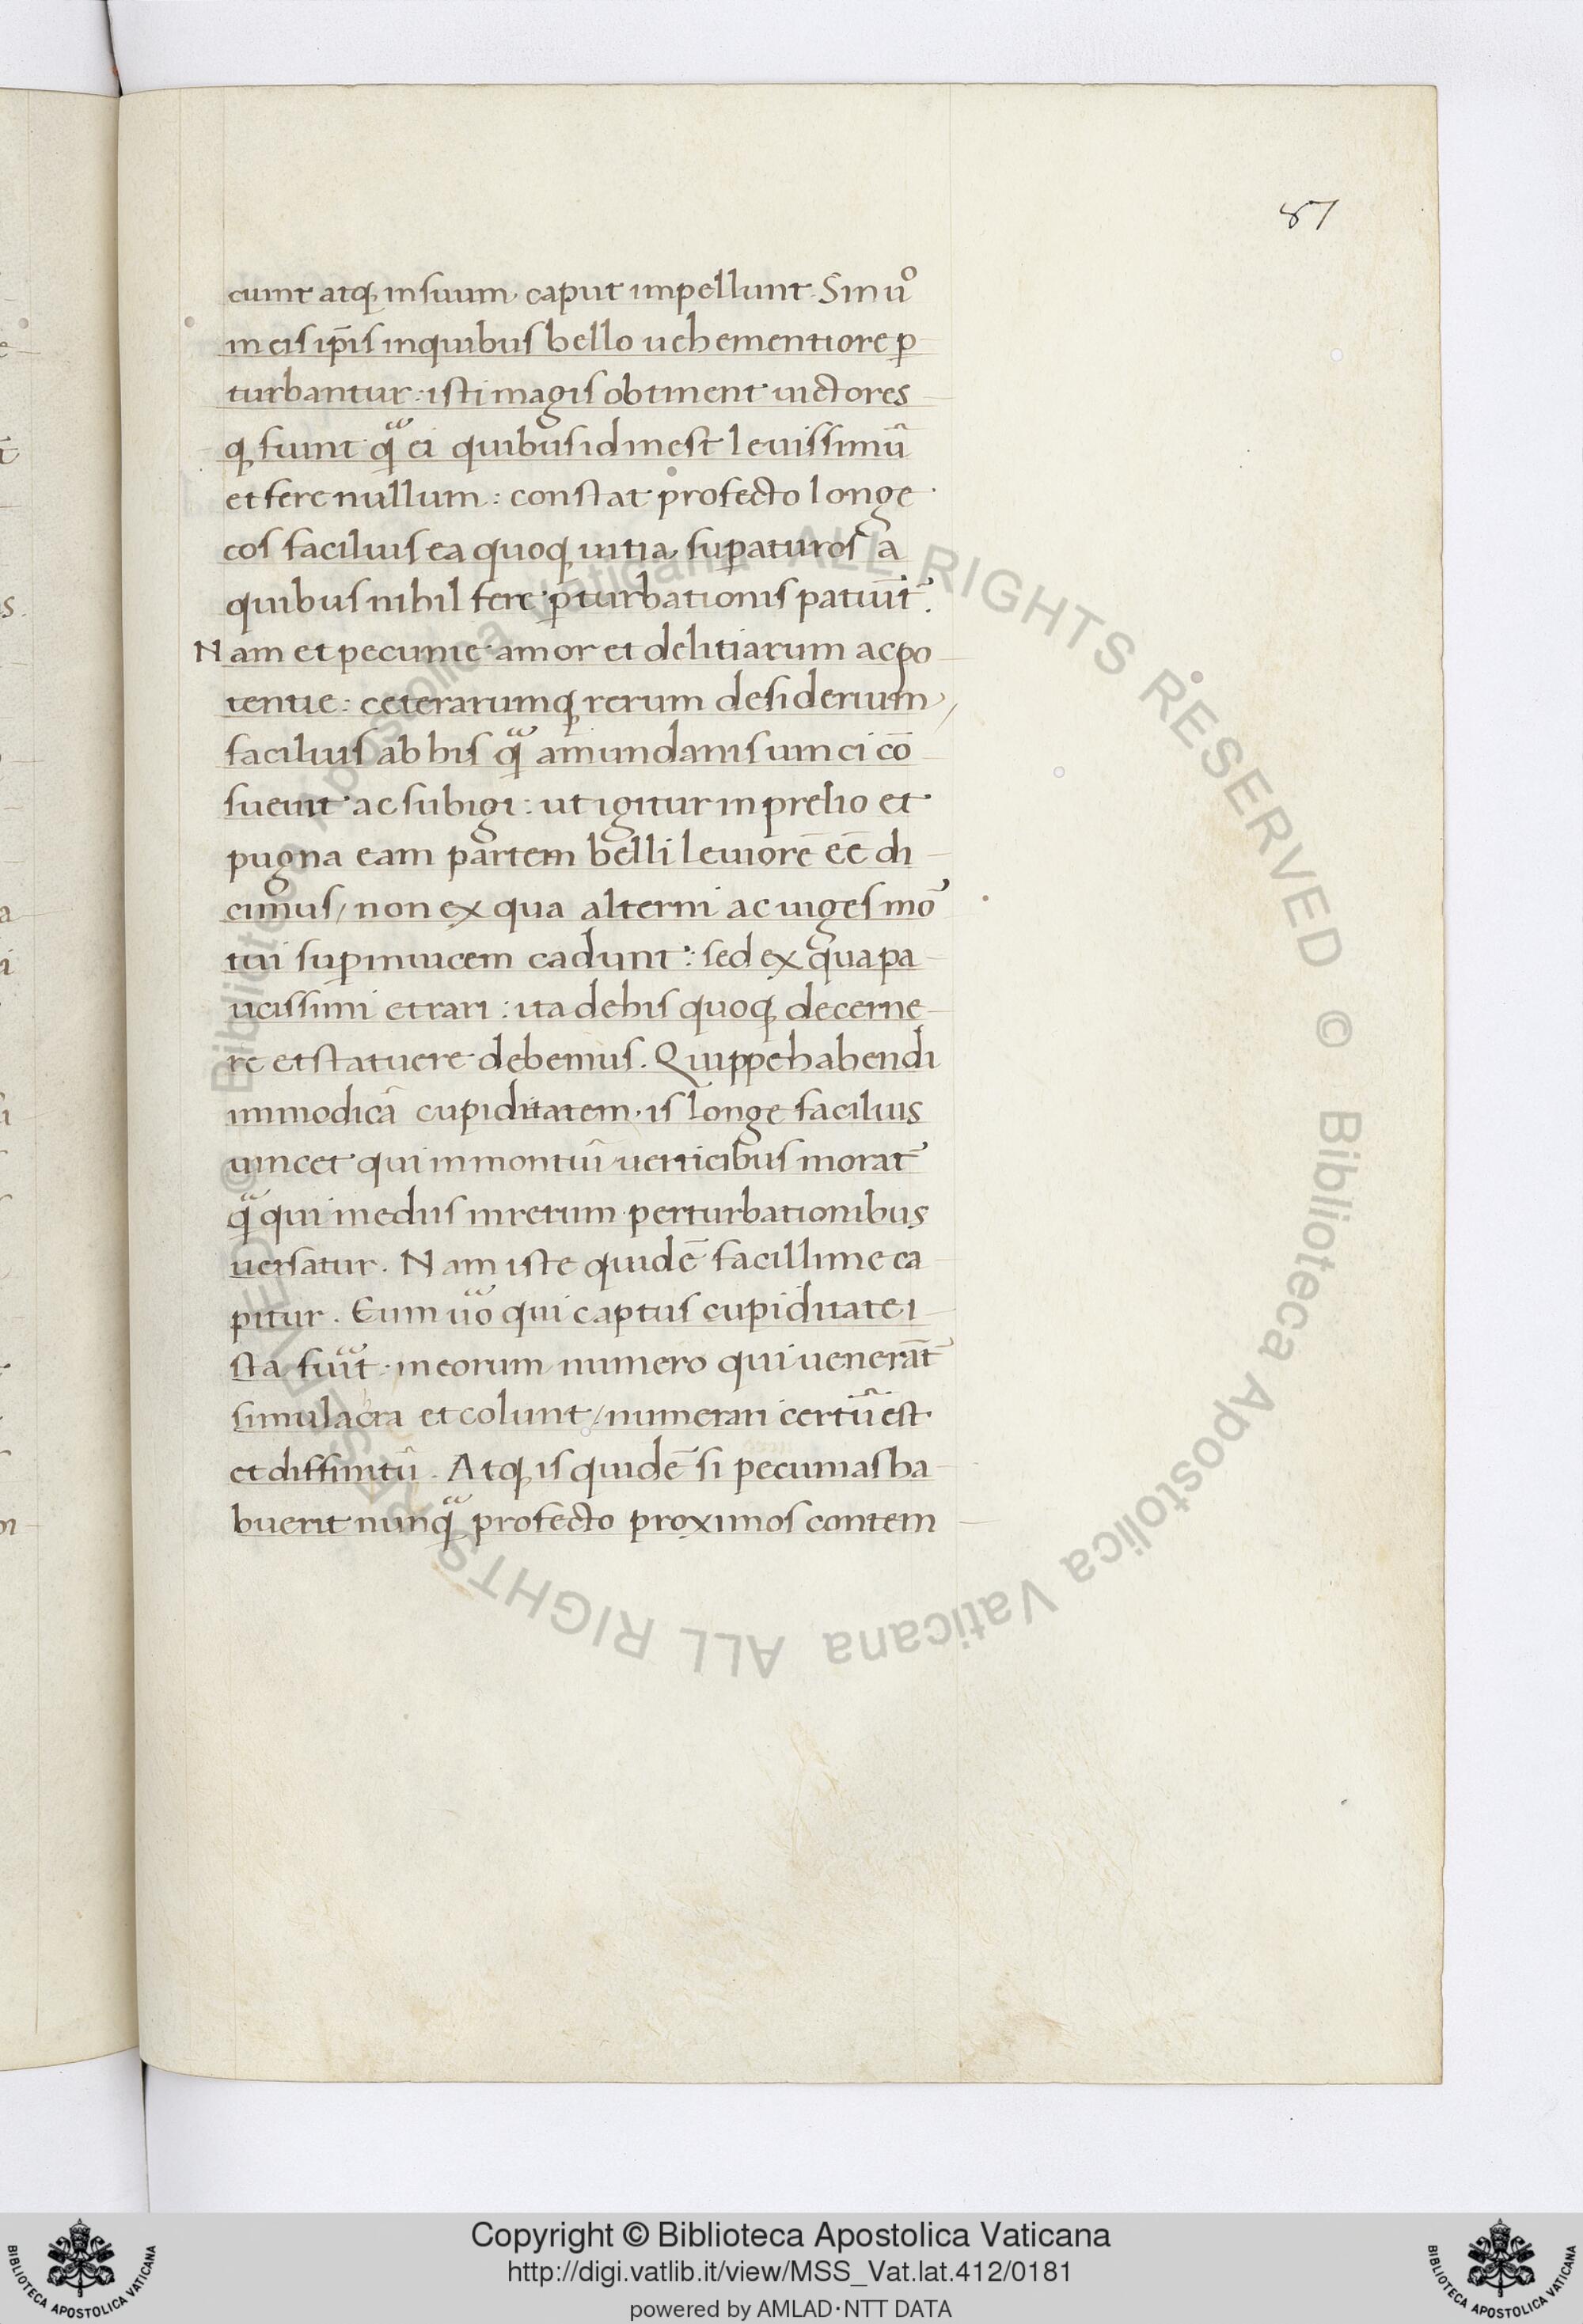 87
ciunt atq; in suum caput impellunt. Sin uͦ
in eis ip̄is in quibus bello uehementiore ꝑ
turbantur: isti magis obtinent uictores
q; fiunt qᷓ ei quibus id inest leuissimū
et fere nullum: constat profecto longe
eos facilius ea quoq; uitia suꝑaturos a
quibus nihil fere ꝑturbationis patiūt᷑.
Nam et pecunie amor et delitiarum ac po
tentie: ceterarumq; rerum desiderium,
facilius ab his qᷓ a mundanis uinci cō
sueuit ac subigi: ut igitur in prelio et
pugna eam partem belli leuiorē eē di
cimus, non ex qua alterni ac iuges mo᷑
tui suꝑ inuicem cadunt: sed ex qua pa
ucissimi et rari: ita de his quoq; decerne
re et statuere debemus. Quippe habendi
immodicā cupiditatem, is longe facilius
uincet qui in montiū uerticibus morat᷑
qᷓ qui mediis in rerum perturbationibus
uersatur. Nam iste quidē facillime ca
pitur. Eum uᷓo qui captus cupiditate i
sta fuᷓit in eorum numero qui uenerāt᷑
simulacra et colunt, numerari certū est
et diffinitū. Atq; is quidē si pecunias ha
buerit nunqᷓ profecto proximos contem
© Biblioteca Apostolica Vaticana ALL RIGHTS RESERVED © Biblioteca Apostolica Vaticana ALL RIGHTS RESERVED
Copyright © Biblioteca Apostolica Vaticana
http://digi.vatlib.it/view/MSS_Vat.lat.412/0181
powered by AMLAD·NTT DATA
BIBLIOTECA APOSTOLICA VATICANA
BIBLIOTECA APOSTOLICA VATICANA